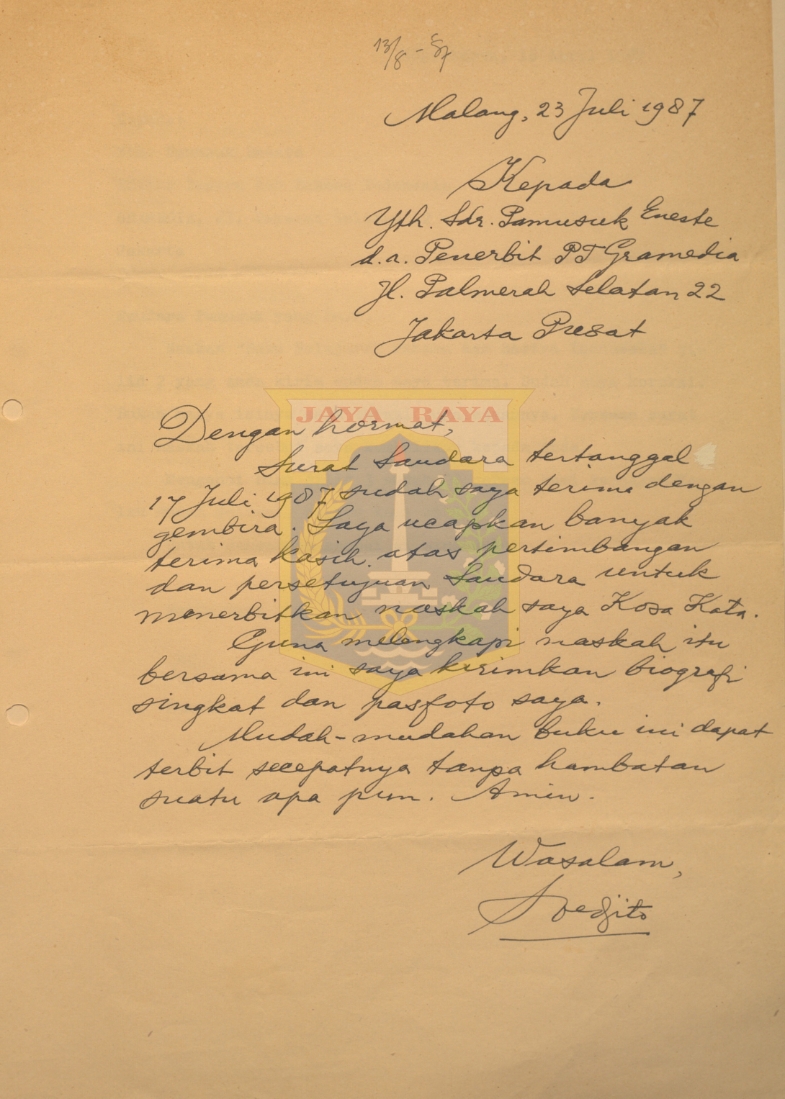 13/8 - 87
Malang, 23 Juli 1987
Kepada
Yth. Sdr. Pamusuk Eneste
d.a. Penerbit PT Gramedia
Jl. Palmerah Selatan 22
Jakarta Pusat
JAYA RAYA
Dengan hormat,
Surat Saudara tertanggal
17 Juli 1987 sudah saya terima dengan
gembira. Saya ucapkan banyak
terima kasih atas pertimbangan
dan persetujuan Saudara untuk
menerbitkan naskah saya Kosa Kata.
Guna melengkapi naskah itu
bersama ini saya kirimkan biografi
singkat dan pasfoto saya.
Mudah-mudahan buku ini dapat
terbit secepatnya tanpa hambatan
suatu apa pun. Amin.
Wasalam,
Soedjito